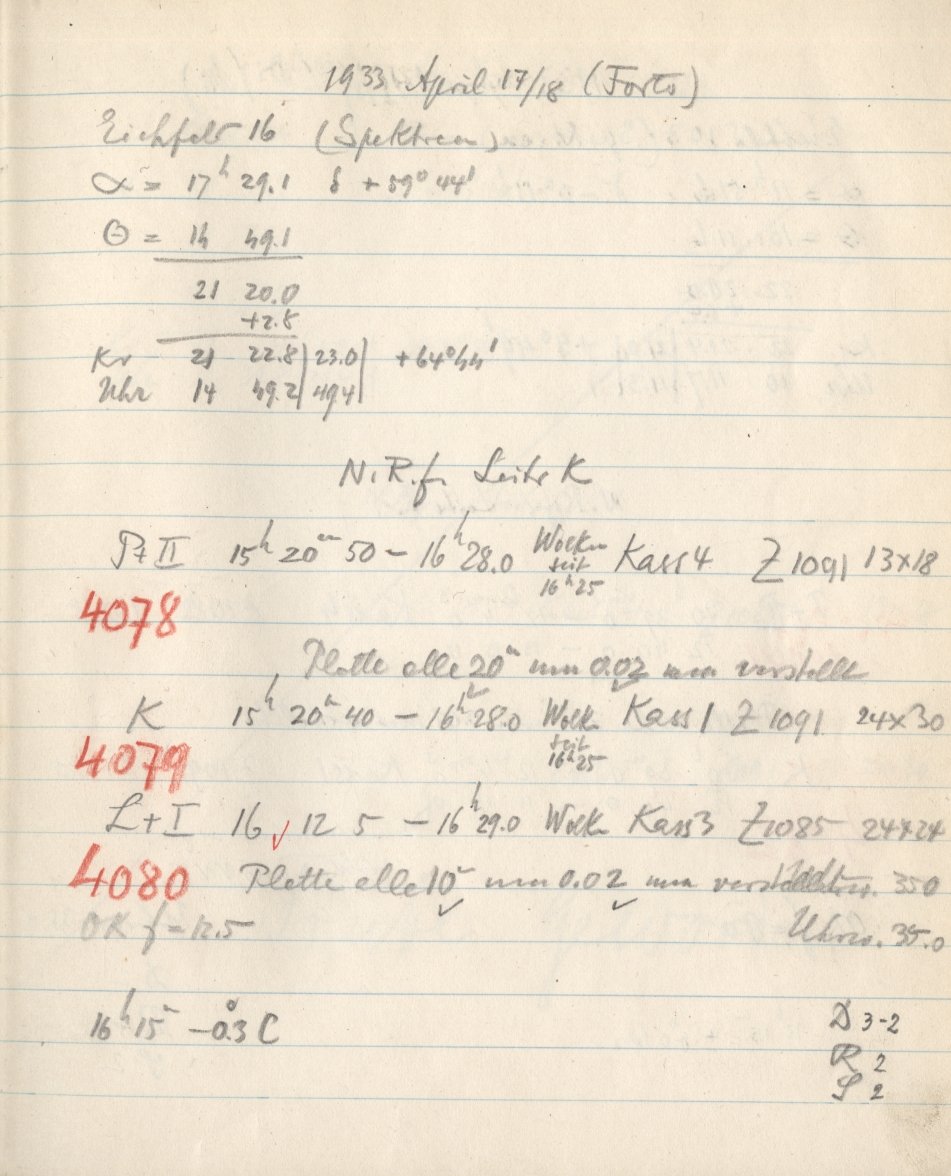 1933 April 17/18 (Forts)
Eichfeld 16 (Spektren)
α = 17h 29.1 δ +59° 44'
Θ = 14 49.1
21 20.0
+2.8
Kr 21 22.8 | 23.0 | +64° 44'
Uhr 14 49.2 | 49.4 |
N.R.f. Seite K
P+II 15h 20m 50 – 16h 28.0 Wolken seit 16h25 Kass 4 Z 1091 13x18
4078
Platte alle 20m um 0.02 mm verstellt
K 15h 20m 40 – 16h 28.0 Wolk seit 16h25 Kass 1 Z 1091 24x30
4079
L+I 16 12 5 – 16h 29.0 Wolk Kass 3 Z 1085 24x24
4080 Platte alle 10m um 0.02 mm verstellt 350
OK f = 12.5 Uhrw. 35.0
16h 15m –0.3°C
D 3-2
R 2
S 2